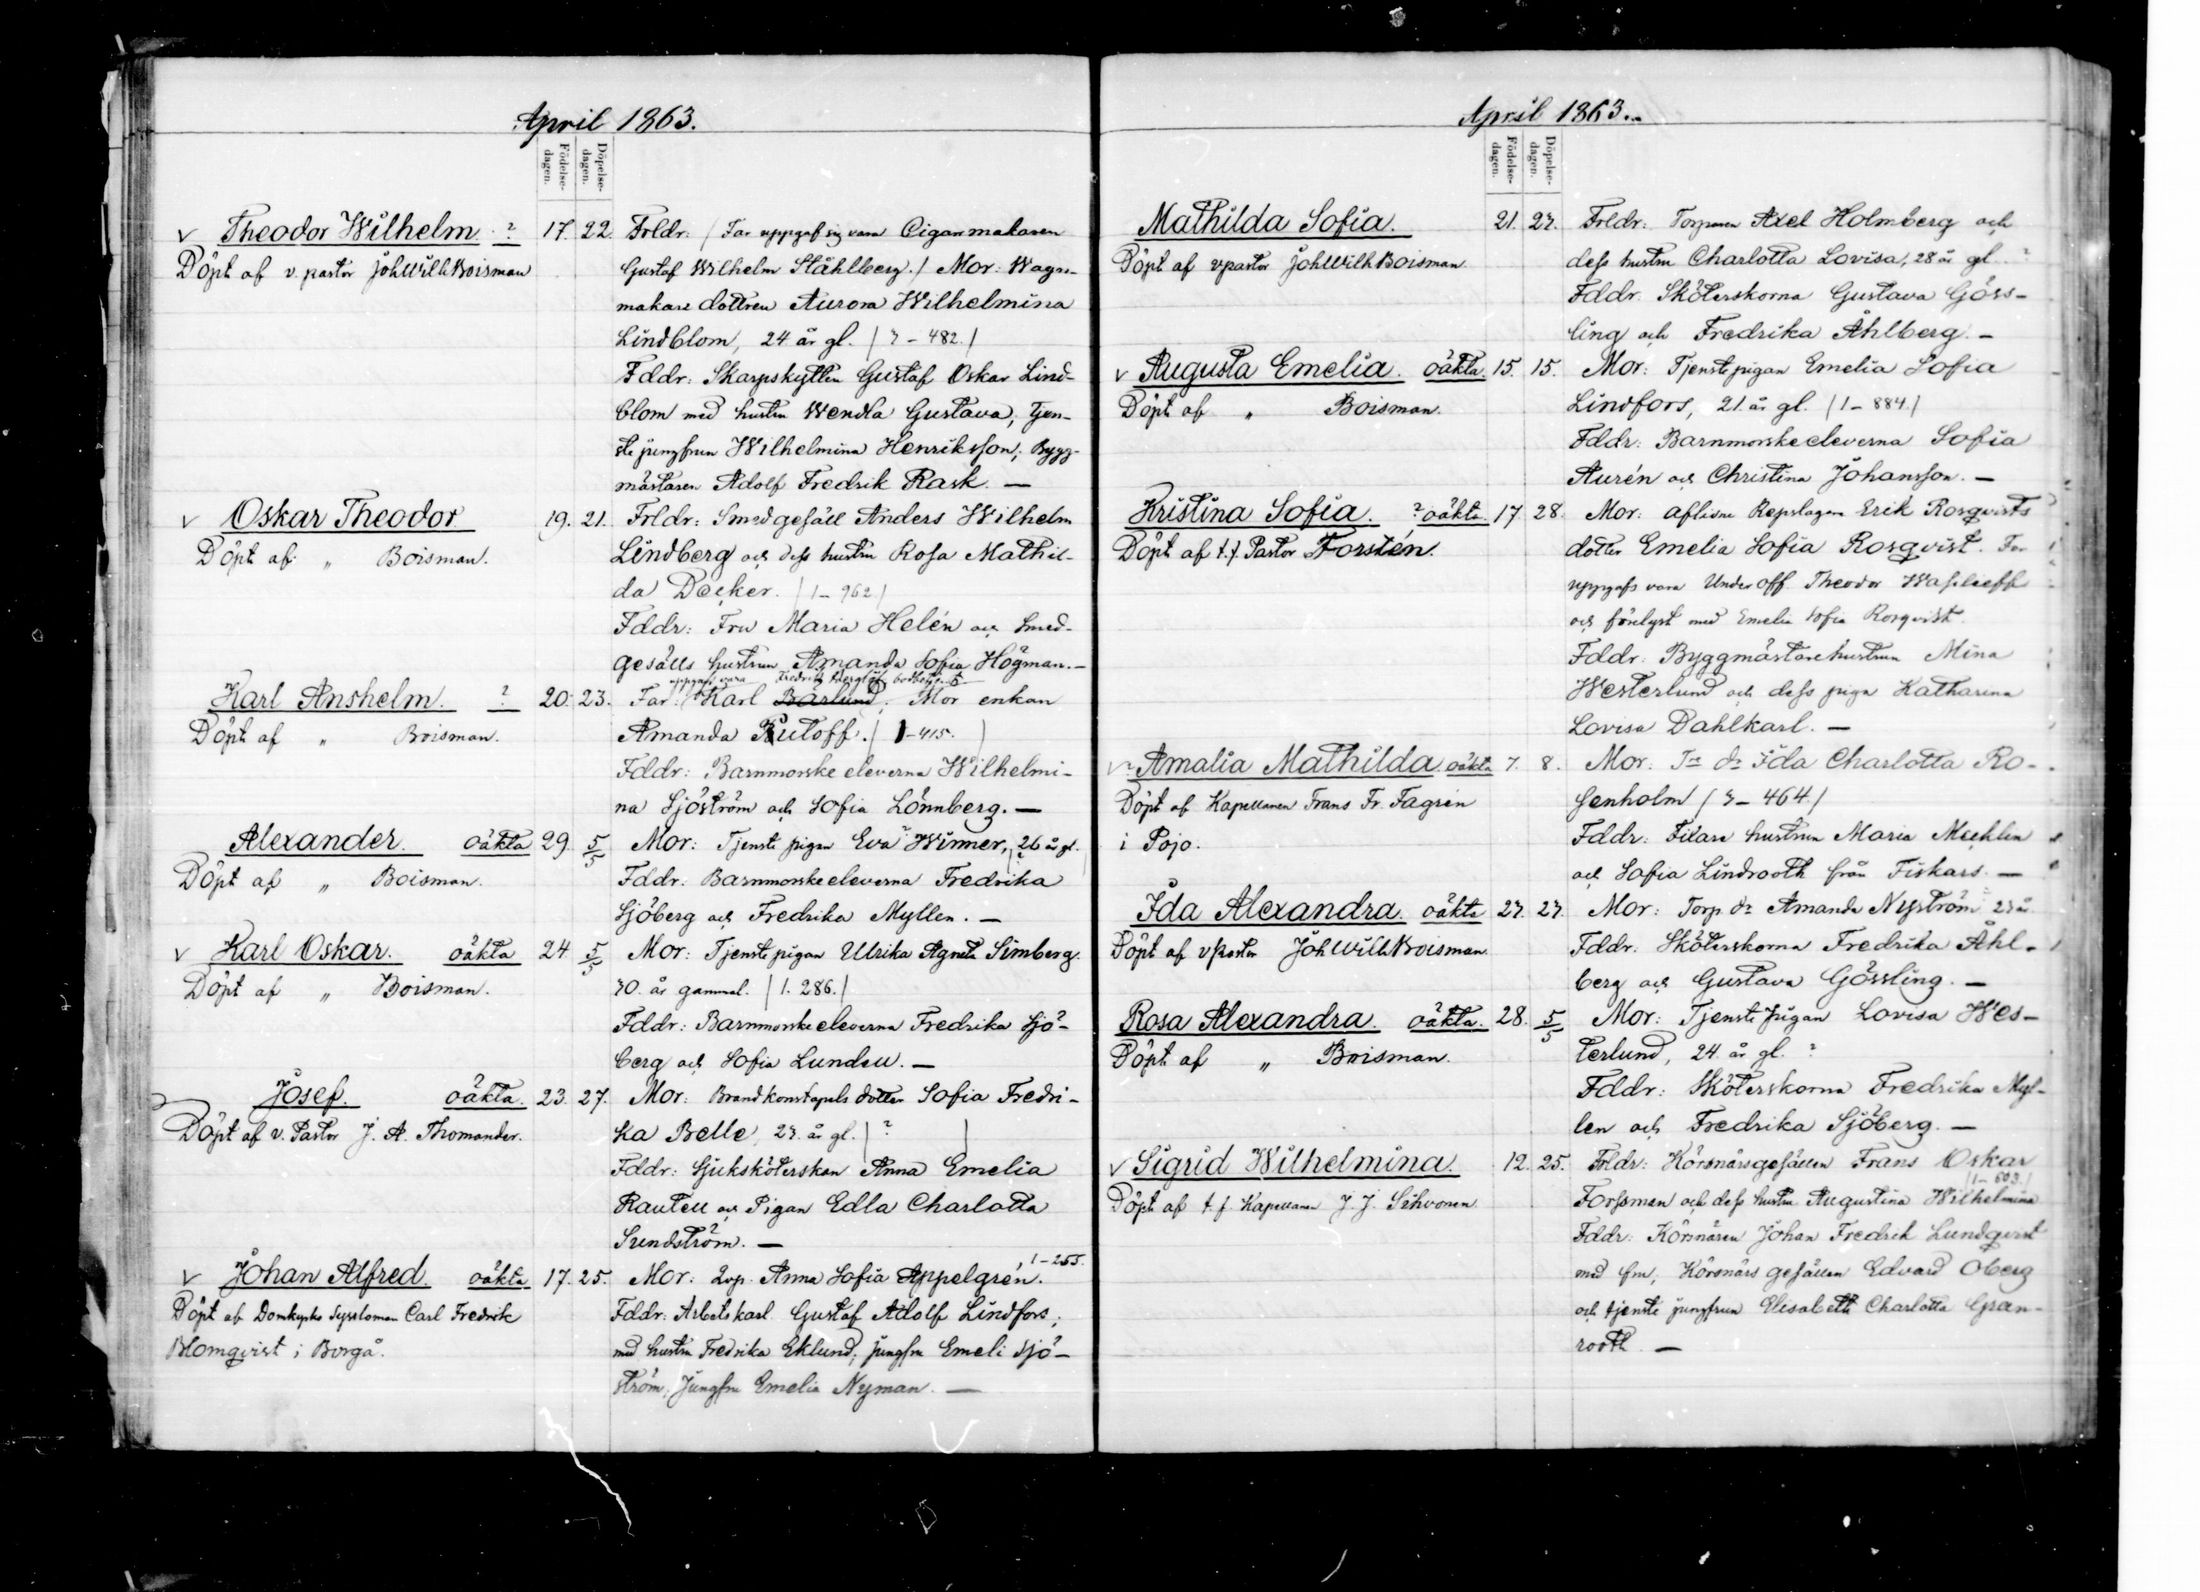 April 1863.
Födelse-
dagen.
Döpelse-
dagen.
Theodor Wilhelm. ? 17. 22. Frldr: (Far uppgaf sig vara Cigarrmakaren
Döpt af v. pastor Joh Wilh Boisman Gustaf Wilhelm Ståhlberg.) Mor: Wagn-
makare dottren Aurora Wilhelmina
Lindblom, 24 år gl. (3-482.)
Fddr: Skarpskytten Gustaf Oskar Lind-
blom med hustru Wendla Gustava, tjen-
ste jungfrun Wilhelmina Henriksson; Bygg-
mästaren Adolf Fredrik Rask. —
v Oskar Theodor 19. 21. Frldr: Smedgesäll Anders Wilhelm
Döpt af „ Boisman. Lindberg och dess hustru Rosa Mathil-
da Decker. (1-962)
Fddr: Fru Maria Helén och Smed-
gesälls hustrun Amanda Sofia Högman. —
uppgafs vara Fredrik
Karl Anshelm. ? 20. 23. Far: (Karl Barlund; Mor enkan
Döpt af „ Boisman. Amanda Rutoff. (1-415.)
Fddr: Barnmorske eleverna Wilhelmi-
na Sjöström och Sofia Lönnberg. —
Alexander. oäkta 29. 5/5 Mor: Tjenste pigan Eva Winner, 26 år gl.
Döpt af „ Boisman. Fddr: Barnmorskeeleverna Fredrika
Sjöberg och Fredrika Myllen. —
v Karl Oskar. oäkta 24 5/5 Mor: Tjenste pigan Ulrika Agneta Simberg.
Döpt af „ Boisman. 30. år gammal. (1. 286.)
Fddr: Barnmorskeeleverna Fredrika Sjö-
berg och Sofia Lundeu. —
Josef. oäkta. 23. 27. Mor: Brandkonstapels dotter Sofia Fredri-
Döpt af v. Pastor J. A. Thomander. ka Belle, 23. år gl. (?)
Fddr: Sjuksköterskan Anna Emelia
Rauteu och Pigan Edla Charlotta
Sundström. —
1-255.
v Johan Alfred. oäkta 17. 25. Mor: Anna Sofia Appelgrén.
Döpt af Domkyrko Syssloman Carl Fredrik Fddr: Arbets karl Gustaf Adolf Lindfors,
Blomqvist i Borgå. med hustru Fredrika Eklund, jungfru Emeli Sjö-
ström, Jungfru Emelia Nyman. —
April 1863.
Födelse-
dagen.
Döpelse-
dagen.
Mathilda Sofia. 21. 23. Frldr: Torparen Axel Holmberg och
Döpt af v pastor Joh Wilh Boisman dess hustru Charlotta Lovisa, 28 år gl. ?
Fddr. Sköterskorna Gustava Göss-
ling och Fredrika Åhlberg. —
v Augusta Emelia. oäkta. 15. 15. Mor: Tjenstepigan Emelia Sofia
Döpt af „ Boisman. Lindfors, 21. år gl. (1-884.)
Fddr: Barnmorskeeleverna Sofia
Aurén och Christina Johansson. —
Kristina Sofia. ? oäkta 17. 28. Mor: aflidne Repslagare Erik Rosqvists
Döpt af t.f. Pastor Forstén. dotter Emelia Sofia Rosqvist. Far
uppgafs vara Underoff. Theodor Wasileeff
och förelyst med Emelia Sofia Rosqvist.
Fddr: Byggmästarehustrun Mina
Westerlund och dess piga Katharina
Lovisa Dahlkarl. —
v Amalia Mathilda oäkta 7. 8. Mor: Ida Charlotta Ro-
Döpt af Kapellanen Frans Fr. Fagrén senholm (3-464.)
i Pojo. Fddr: Filare hustrun Maria Mechlin
och Sofia Lindrooth från Fiskars. —
Ida Alexandra. oäkta 23. 23. Mor: Torp. dr Amanda Nyström 23 år
Döpt af v Pastor Joh Wilh Boisman Fddr: Sköterskorna Fredrika Åhl-
berg och Gustava Gössling. —
Rosa Alexandra. oäkta. 28. 5/5 Mor: Tjenste pigan Lovisa Wes-
Döpt af „ Boisman. terlund, 24. år gl. ?
Fddr: Sköterskorna Fredrika Myl-
len och Fredrika Sjöberg. —
v Sigrid Wilhelmina. 12. 25. Frldr: Körsnärsgesällen Frans Oskar
Döpt af t.f. Kapellanen J. J. Sihvonen Forssman och dess hustru Augustina Wilhelmina
Fddr: Körsnären Johan Fredrik Lundqvist
med fru, Körsnärsgesällen Edvard Öberg
och tjenste jungfrun Elisabeth Charlotta Gran-
rooth. —